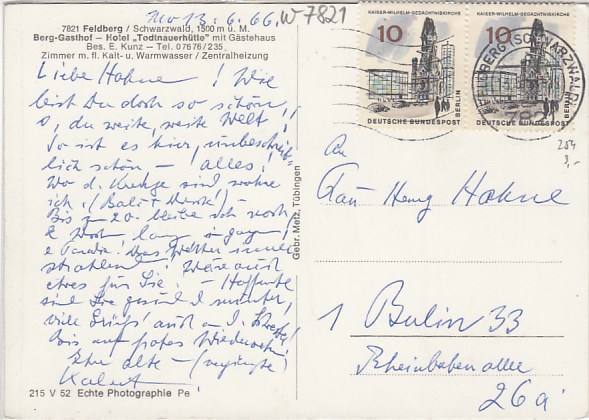 Mo 13.6.66.
W 7821
7821 Feldberg / Schwarzwald, 1500 m ü. M.
Berg-Gasthof – Hotel „Todtnauerhütte" mit Gästehaus
Bes. E. Kunz – Tel. 07676/235
Zimmer m. fl. Kalt- u. Warmwasser / Zentralheizung
Liebe Hahne! Wie
bist Du doch so schön
o, du weite, weite Welt!
So ist es hier, unbeschreib-
lich schön – (alles!
Wo d. sind wohne
ich.
Bis z. 20. bleibe ich noch
Woch lang in
Paradies! Das Wetter immer
strahlend! Wäre auch
etwas für Sie. – Hoffentl.
sind Sie gesund & munter,
viele Grüße! auch
Bis auf frohes Wiedersehn!
Ihre alte – (vergnügte)
215 V 52 Echte Photographie Pe
Gebr. Metz, Tübingen
KAISER-WILHELM-GEDÄCHTNISKIRCHE
10
DEUTSCHE BUNDESPOST BERLIN
KAISER-WILHELM-GEDÄCHTNISKIRCHE
10
DEUTSCHE BUNDESPOST BERLIN
FELDBERG (SCHWARZWALD)
782
254
3,-
An
Frau Henny Hahne
1 Berlin 33
Rheinbabenallee
26a